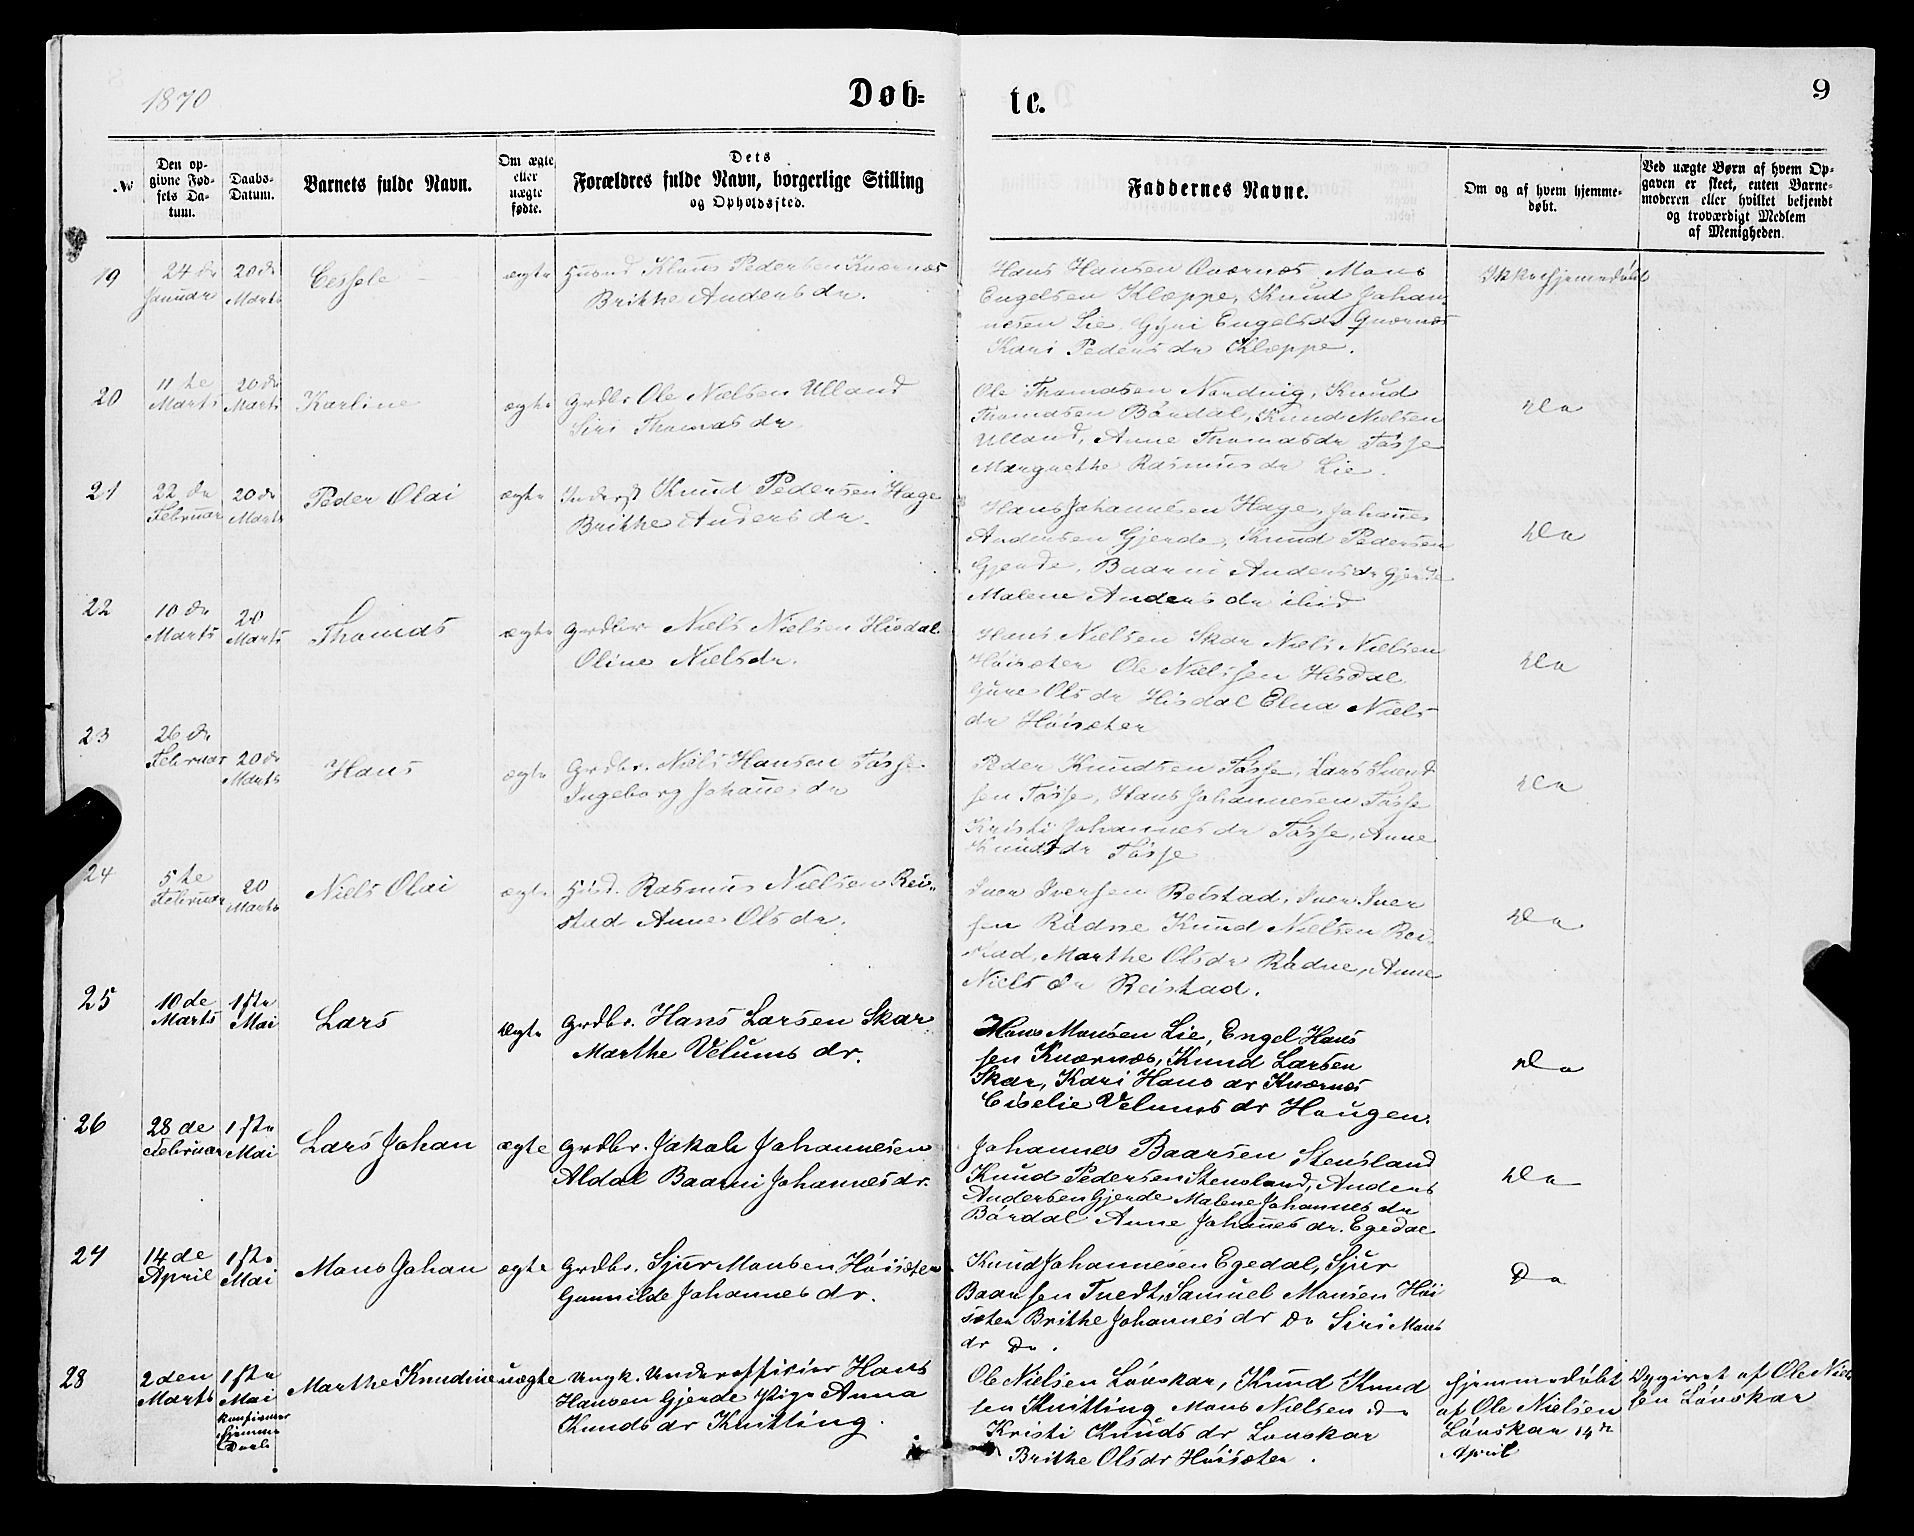 1870
Døb-
te.
9
№
Den op-
givne Fød-
sels Da-
tum.
Daabs-
Datum.
Barnets fulde Navn.
Om ægte
eller
uægte
fødte.
Dets
Forældres fulde Navn, borgerlige Stilling
og Opholdssted.
Faddernes Navne.
Om og af hvem hjemme-
døbt.
Ved uægte Børn af hvem Op-
gaven er skeet, enten Barne-
moderen eller hvilket bekjendt
og troværdigt Medlem
af Menigheden.
19
24 de
Januar
20 de
Marts
Cessele
ægte
Husmd Klaus Pedersen Kvernes
Brithe Andersdr.
Hans Hansen Qvernes Mons
Engelsen Kleppe, Knud Johan
nesen Lie, Gyri Engelsdr Qvernes
Kari Pedersdr Kleppe.
Ikke hjemedøbt
20
11 te
Marts
20 de
Marts
Karline
ægte
Grdbr Ole Nielsen Ulland
Siri Thomasdr
Ole Thomasen Nordvig, Knud
Thomasen Børdal, Knud Nielsen
Ulland, Anne Thomasdr Tøsse
Margrethe Rasmusdr Lie.
Do
21
22 de
Februar
20 de
Marts
Peder Olai
ægte
Inderst Knud Pedersen Hage
Brithe Andersdr.
Hans Johannesen Hage, Johannes
Andersen Gjerde, Knud Pedersen
Gjerde, Baarni Andersdr Gjerde
Malene Andersdr ibid
Do
22
10 de
Marts
20
Marts
Thomas
ægte
Grdbr Niels Nielsen Hisdal
Oline Nielsdr.
Hans Nielsen Skar Niels Nielsen
Høisæter Ole Nielssen Hisdal
Guro Olsdr Hisdal Elna Niels
dr Høisæter
Do
23
26 de
Februar
20 de
Marts
Hans
ægte
Grdbr. Niels Hansen Tøsse
Ingeborg Johanesdr
Peder Knudsen Tøsse, Lars Svend
sen Tøsse, Hans Johannesen Tøsse
Kristi Johannesdr Tøsse, Anne
Knudsdr Tøsse
Do
24
5 te
Februar
20
Marts
Niels Olai
ægte
Husd. Rasmus Nielsen Rei-
stad Anne Olsdr.
Iver Iversen Reistad, Iver Iver
sen Rødne Knud Nielsen Rei-
stad, Marthe Olsdr Rødne, Anne
Nielsdr Reistad.
Do
25
10 de
Marts
1 ste
Mai
Lars
ægte
Grdbr. Hans Larsen Skar
Marthe Velums dr.
Hans Monsen Lie, Engel Hans
sen Kvernes, Knud Larsen
Skar, Kari Hans dr Kvernes
Ciselie Velums dr Haugen.
Do
26
28 de
Februar
1 ste
Mai
Lars Johan
ægte
Grdbr. Jakob Johannesen
Aldal Baarni Johannesdr.
Johannes Baarsen Stensland
Knud Pedersen Stensland, Anders
Andersen Gjerde Malene Johannes dr
Børdal Anne Johanes dr. Egedal
Do
27
14 de
April
1 ste
Mai
Mons Johan
ægte
Grdbr. Sjur Monsen Høisæter
Gunnilde Johannes dr.
Knud Johannesen Egedal, Sjur
Baarsen Tvedt, Samuel Monsen Høi
sæter Brithe Johannes dr Do Siri Mons
dr Do.
Do
28
2 den
Marts
1 ste
Mai
konfirmer
hjemme
Daab
Marthe Knudine
uægte
Ungk. Underofficier Hans
Hansen Gjerde Pige Anna
Knuds dr Knitling.
Ole Nielsen Lønskar, Knud Knud
sen Knitling Mons Nielsen Do
Kristi Knuds dr Lønskar
Brithe Olsdr Høisæter.
Hjemmedøbt
af Ole Nielsen
Lønskar 14 de
April
Opgivet af Ole Niel
sen Lønskar